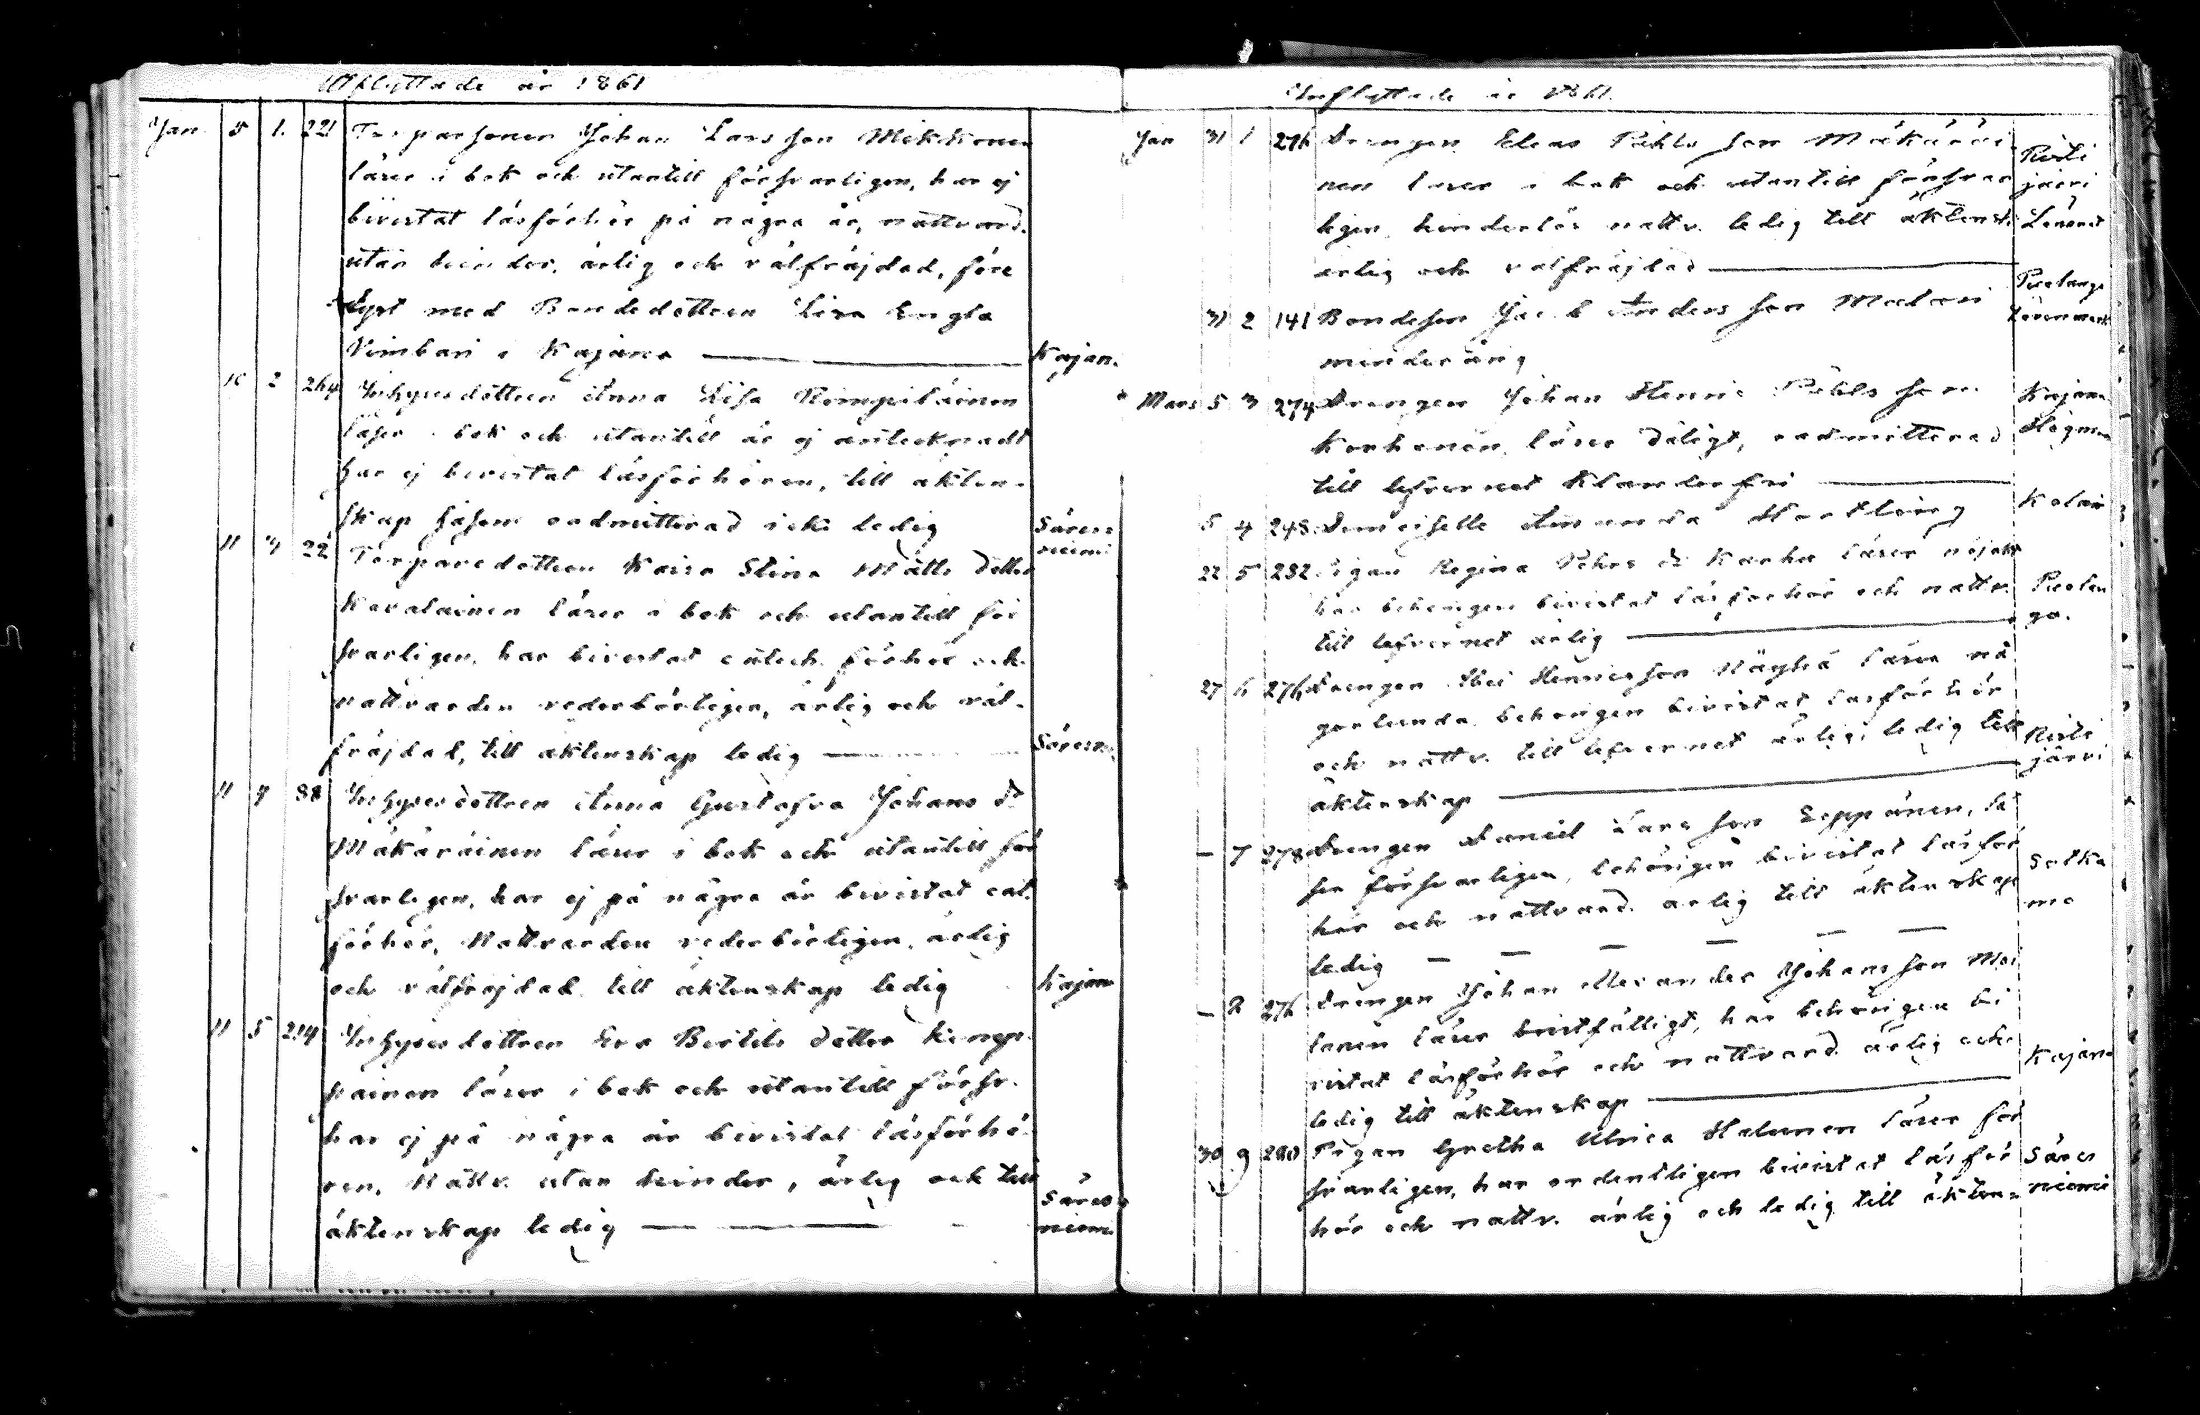 Utflyttade år 1861
Jan. 5 1. 221 Torparsonen Johan Larsson Mikkonen
läser i bok och utantill försvarligen, har ej
bevistat läsförhör på några år, nattvard.
utan hinder, ärlig och välfräjdad, före
lyst med Bondedottren Lisa Engla
Vimbari i Kajana Kajan.
16 2 264 Inhysesdottren Anna Lisa Rimpiläinen
läser i bok och utantill är ej antecknadt
har ej bevistat läsförhören, till äkten-
skap såsom oadmitterad icke ledig Säres-
niemi
11 3 22 Torparedottren Kaisa Stina Matts dotter
Kovalainen läser i bok och utantill för
svarligen, har bevistat catech. förhör och
nattvarden vederbörligen, ärlig och väl-
fräjdad, till äktenskap ledig Säresn.
11 4 88 Inhysesdottren Anna Gustafva Johans dr
Mäkäräinen läser i bok och utantill för
svarligen, har ej på några år bevistat cat.
förhör, Nattvarden vederbörligen, ärlig
och välfräjdad till äktenskap ledig Kajan
11 5 214 Inhysesdottren Eva Bertils dotter Kemp-
painen läser i bok och utantill försv.
har ej på några år bevistat läsförhö-
ren, Nattv. utan hinder, ärlig och till
äktenskap ledig Säres-
niemi
Inflyttade år 1861.
Jan 31 1 276 Drengen Elias Påhls son Mäkäräi
nen läser i bok och utantill försvar
ligen, hinderlös nattv. ledig till äktensk.
ärlig och välfräjdad Risti
järvi
31 2 141 Bondeson Jacob Anders son Malari
minderårig Puolango
Mars 5 3 274 Drengen Johan Henric Påhls son
Korhonen, läser dåligt, oadmitterad
till lefvernet klanderfri Kajana
5 4 248 Demoiselle Amanda Hartling
22 5 282 Pigan Regina Pehrs dr Karhu läser nöjakt
har behörigen bevistat läsförhör och nattv.
till lefvernet ärlig Puolan
go.
27 6 276 Drengen Henricsson Näyhä läser nå
gorlunda, behörigen bevistat läsförhör
och nattv. till lefvernet ärlig, ledig till
äktenskap Risti
järvi
— 7 278 Drengen Daniel Lars son Seppänen, lä
ser försvarligen, behörigen bevistat läsför
hör och nattvard. ärlig till äktenskap
ledig Sotka
mo
— 8 276 Drengen Johan Alexander Johans son Moi
lanen läser bristfälligt, har behörigen be
vistat läsförhör och nattvard. ärlig och
ledig till äktenskap Kajana
30 9 280 Pigan Gretha Ulrica Halonen läser för
svarligen, har ordentligen bevistat läsför
hör och nattv. ärlig och ledig till äkten- Säres
niemi